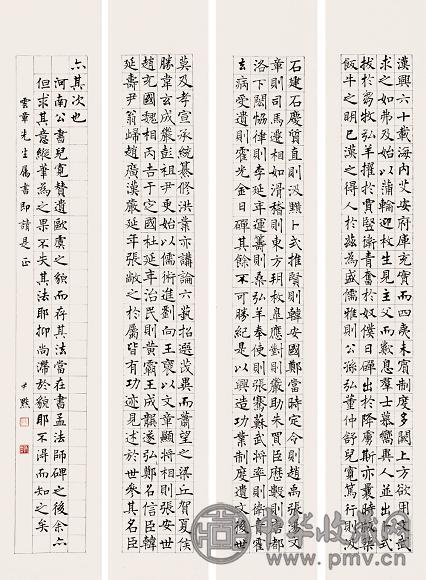 漢興六十載海內艾安府庫充實而四夷未賓制度多闕上方欲用文武
求之如弗及始以蒲輪迎枚生見主父而歎息羣士慕嚮異人並出卜式
拔於芻牧弘羊擢於賈豎衛青奮於奴僕日磾出於降虜斯亦曩時版築
飯牛之明已漢之得人於茲為盛儒雅則公孫弘董仲舒兒寬篤行則
石建石慶質直則汲黯卜式推賢則韓安國鄭當時定令則趙禹張湯文
章則司馬遷相如滑稽則東方朔枚皋應對則嚴助朱買臣歷數則唐都
洛下閎協律則李延年運籌則桑弘羊奉使則張騫蘇武將率則衛青霍
去病受遺則霍光金日磾其餘不可勝紀是以興造功業制度遺文後世
莫及孝宣承統纂修洪業亦講論六藝招選茂異而蕭望之梁丘賀夏侯
勝韋玄成嚴彭祖尹更始以儒術進劉向王褒以文章顯將相則張安世
趙充國魏相丙吉于定國杜延年治民則黃霸王成龔遂弘鄭召信臣韓
延壽尹翁歸趙廣漢嚴延年張敞之於屬皆有功迹見述於世參其名臣
亦其次也
河南公書兒寬贊遺歐虞之貌而存其法當在書孟法師碑之後余亦
但求其意縱筆為之果不失其法耶抑尚滯於貌耶不得而知之矣
雲章先生屬書即請是正
尹默
中华收藏网
www.pmv.cn